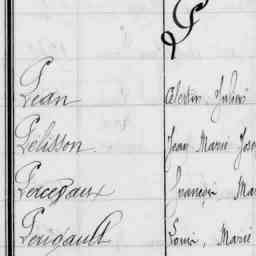 P
Péan Célestin, Julien
Pélisson Jean Marie José
Percevaux François Mar
Périgault Louis, Marie